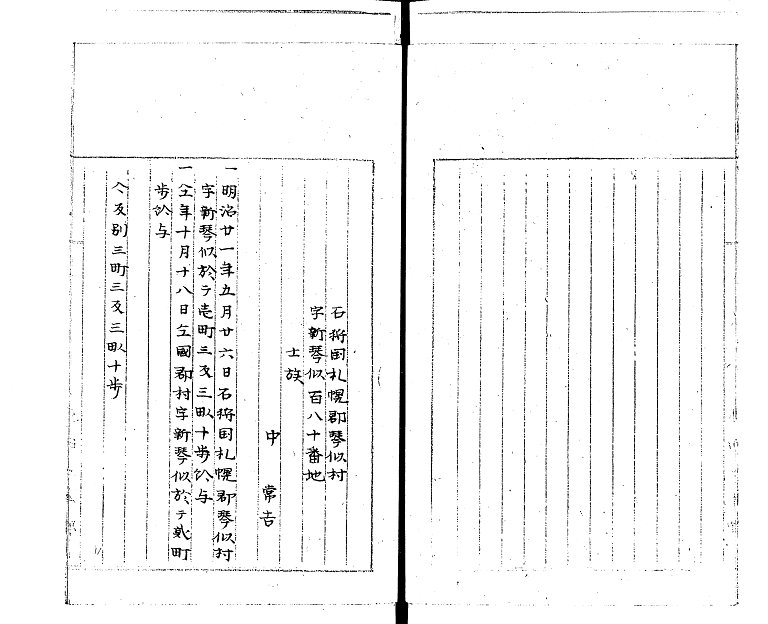 石狩国札幌郡琴似村
字新琴似百八十番地
士族
中 常吉
一明治廿一年五月廿六日石狩国札幌郡琴似村
字新琴似於テ壱町三反三畝十歩公与
一仝年十月十八日仝國郡村字新琴似於テ貳町
歩公与
反別三町三反三畝十歩